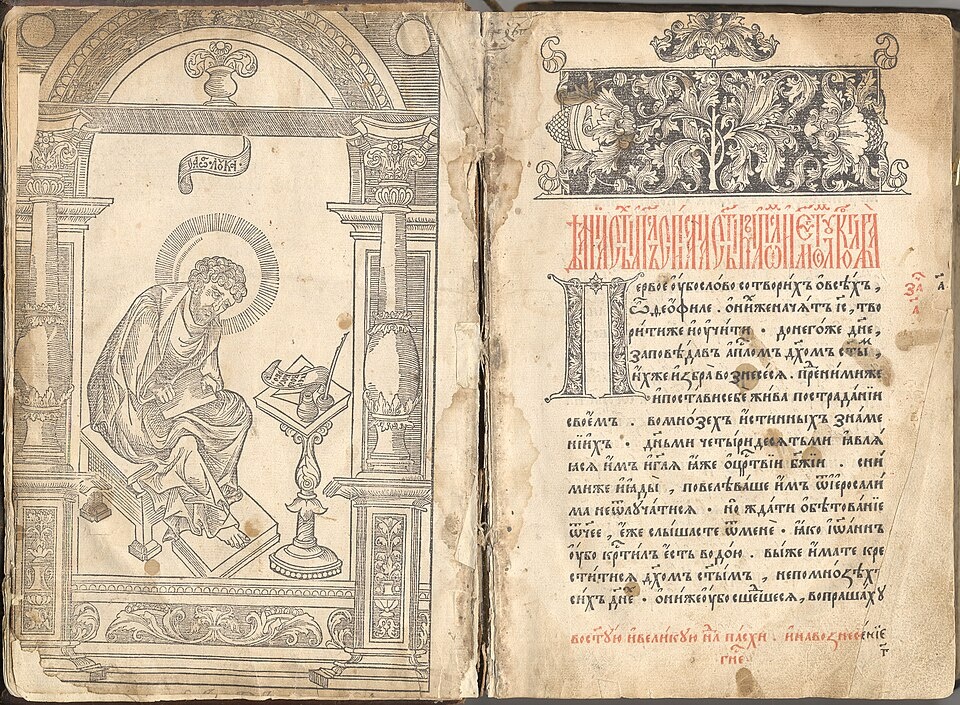 лука
Первоє ѹ҆бо слово сотвори́хъ ѡ҆ всѣ́хъ,
ѽ ѳеѡ҆́филе . ѡ҆ ни́хже начатъ і҆с, тво
ри́ти же и҆ ѹ҆чи́ти . до него́же дн҃е,
заповѣ́давъ а҆пⷭ҇ломъ дх҃омъ ст҃ы́м,
и҆́хже и҆збра̀ вознесе́сѧ . пред ни́миже
и҆ поста́ви себѐ жи́ва по страда́нїи
своє́мъ . во мно́зехъ и҆́стинныхъ зна́ме
нїихъ . дньмѝ четы́ридесѧтьми ꙗ҆влѧ́
ꙗсѧ и҆̀мъ и҆ гл҃ѧ ꙗ҆́же ѡ҆ црⷭ҇твїи бж҃їи . с ни́
миже и҆ ꙗ҆ды̀, повелѣва́ше и҆̀мъ ѿ і҆єросали́
ма не ѿлуча́тисѧ . но жда́ти ѡ҆бѣтова́нїє
ѿчеє, є҆́же слы́шасте ѿ менѐ . ꙗ҆́ко і҆ѡа́ннъ
ѹ҆́бо крⷭ҇ти́лъ є҆́сть водо́ю . вы́ же и҆́мате кре
сти́тисѧ дх҃омъ ст҃ы́мъ, не по мно́зѣхъ
си́хъ дн҃е . ѡ҆ни́же ѹ҆́бо сше́дшесѧ, вопраша́хꙋ
во ст҃ꙋю и҆ вели́кꙋю нⷣлѧ па́схи . и҆ на вознесе́нїє
гн҃е